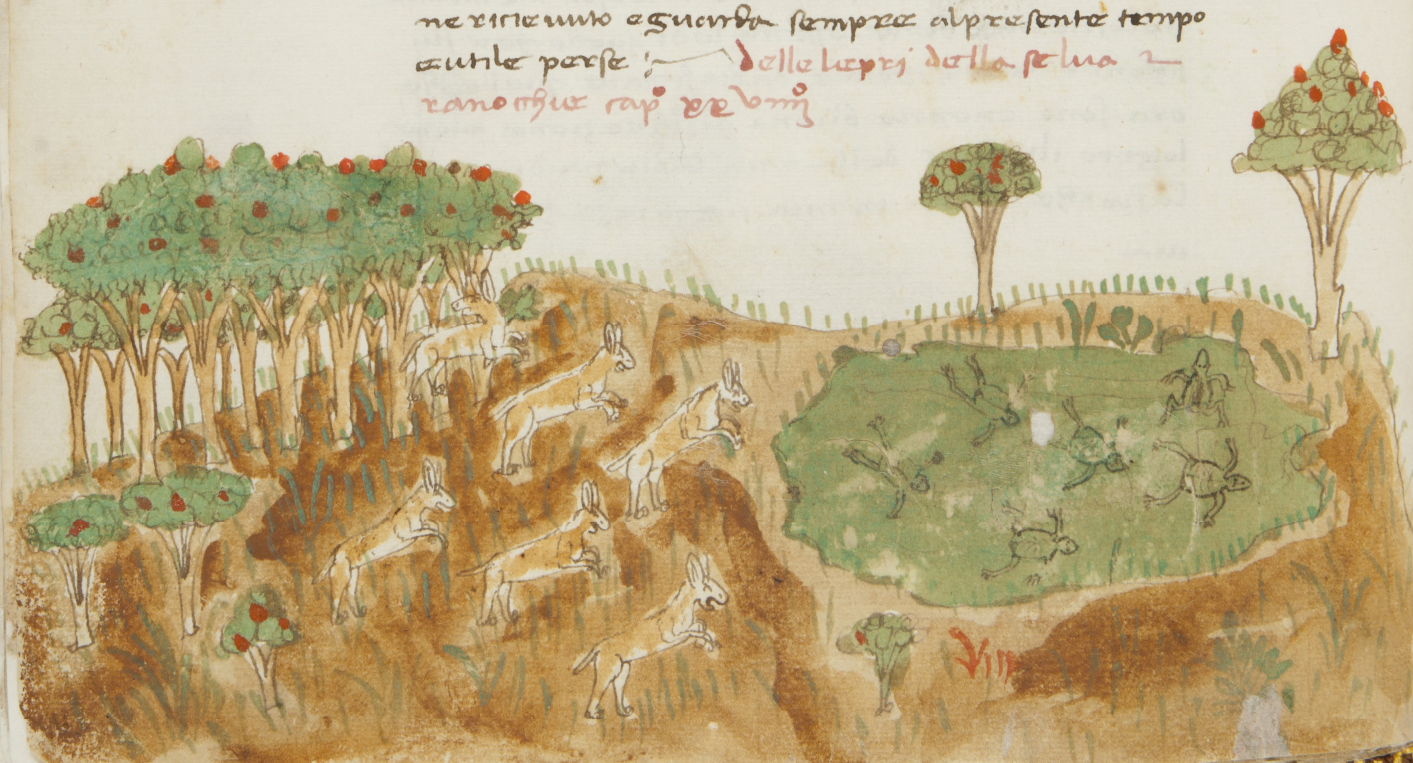 ne ricievuto e guarda sempre al presente tempo
e utile per se : delle lepri della selva 2
ranochie capº xxviiijº
Viii